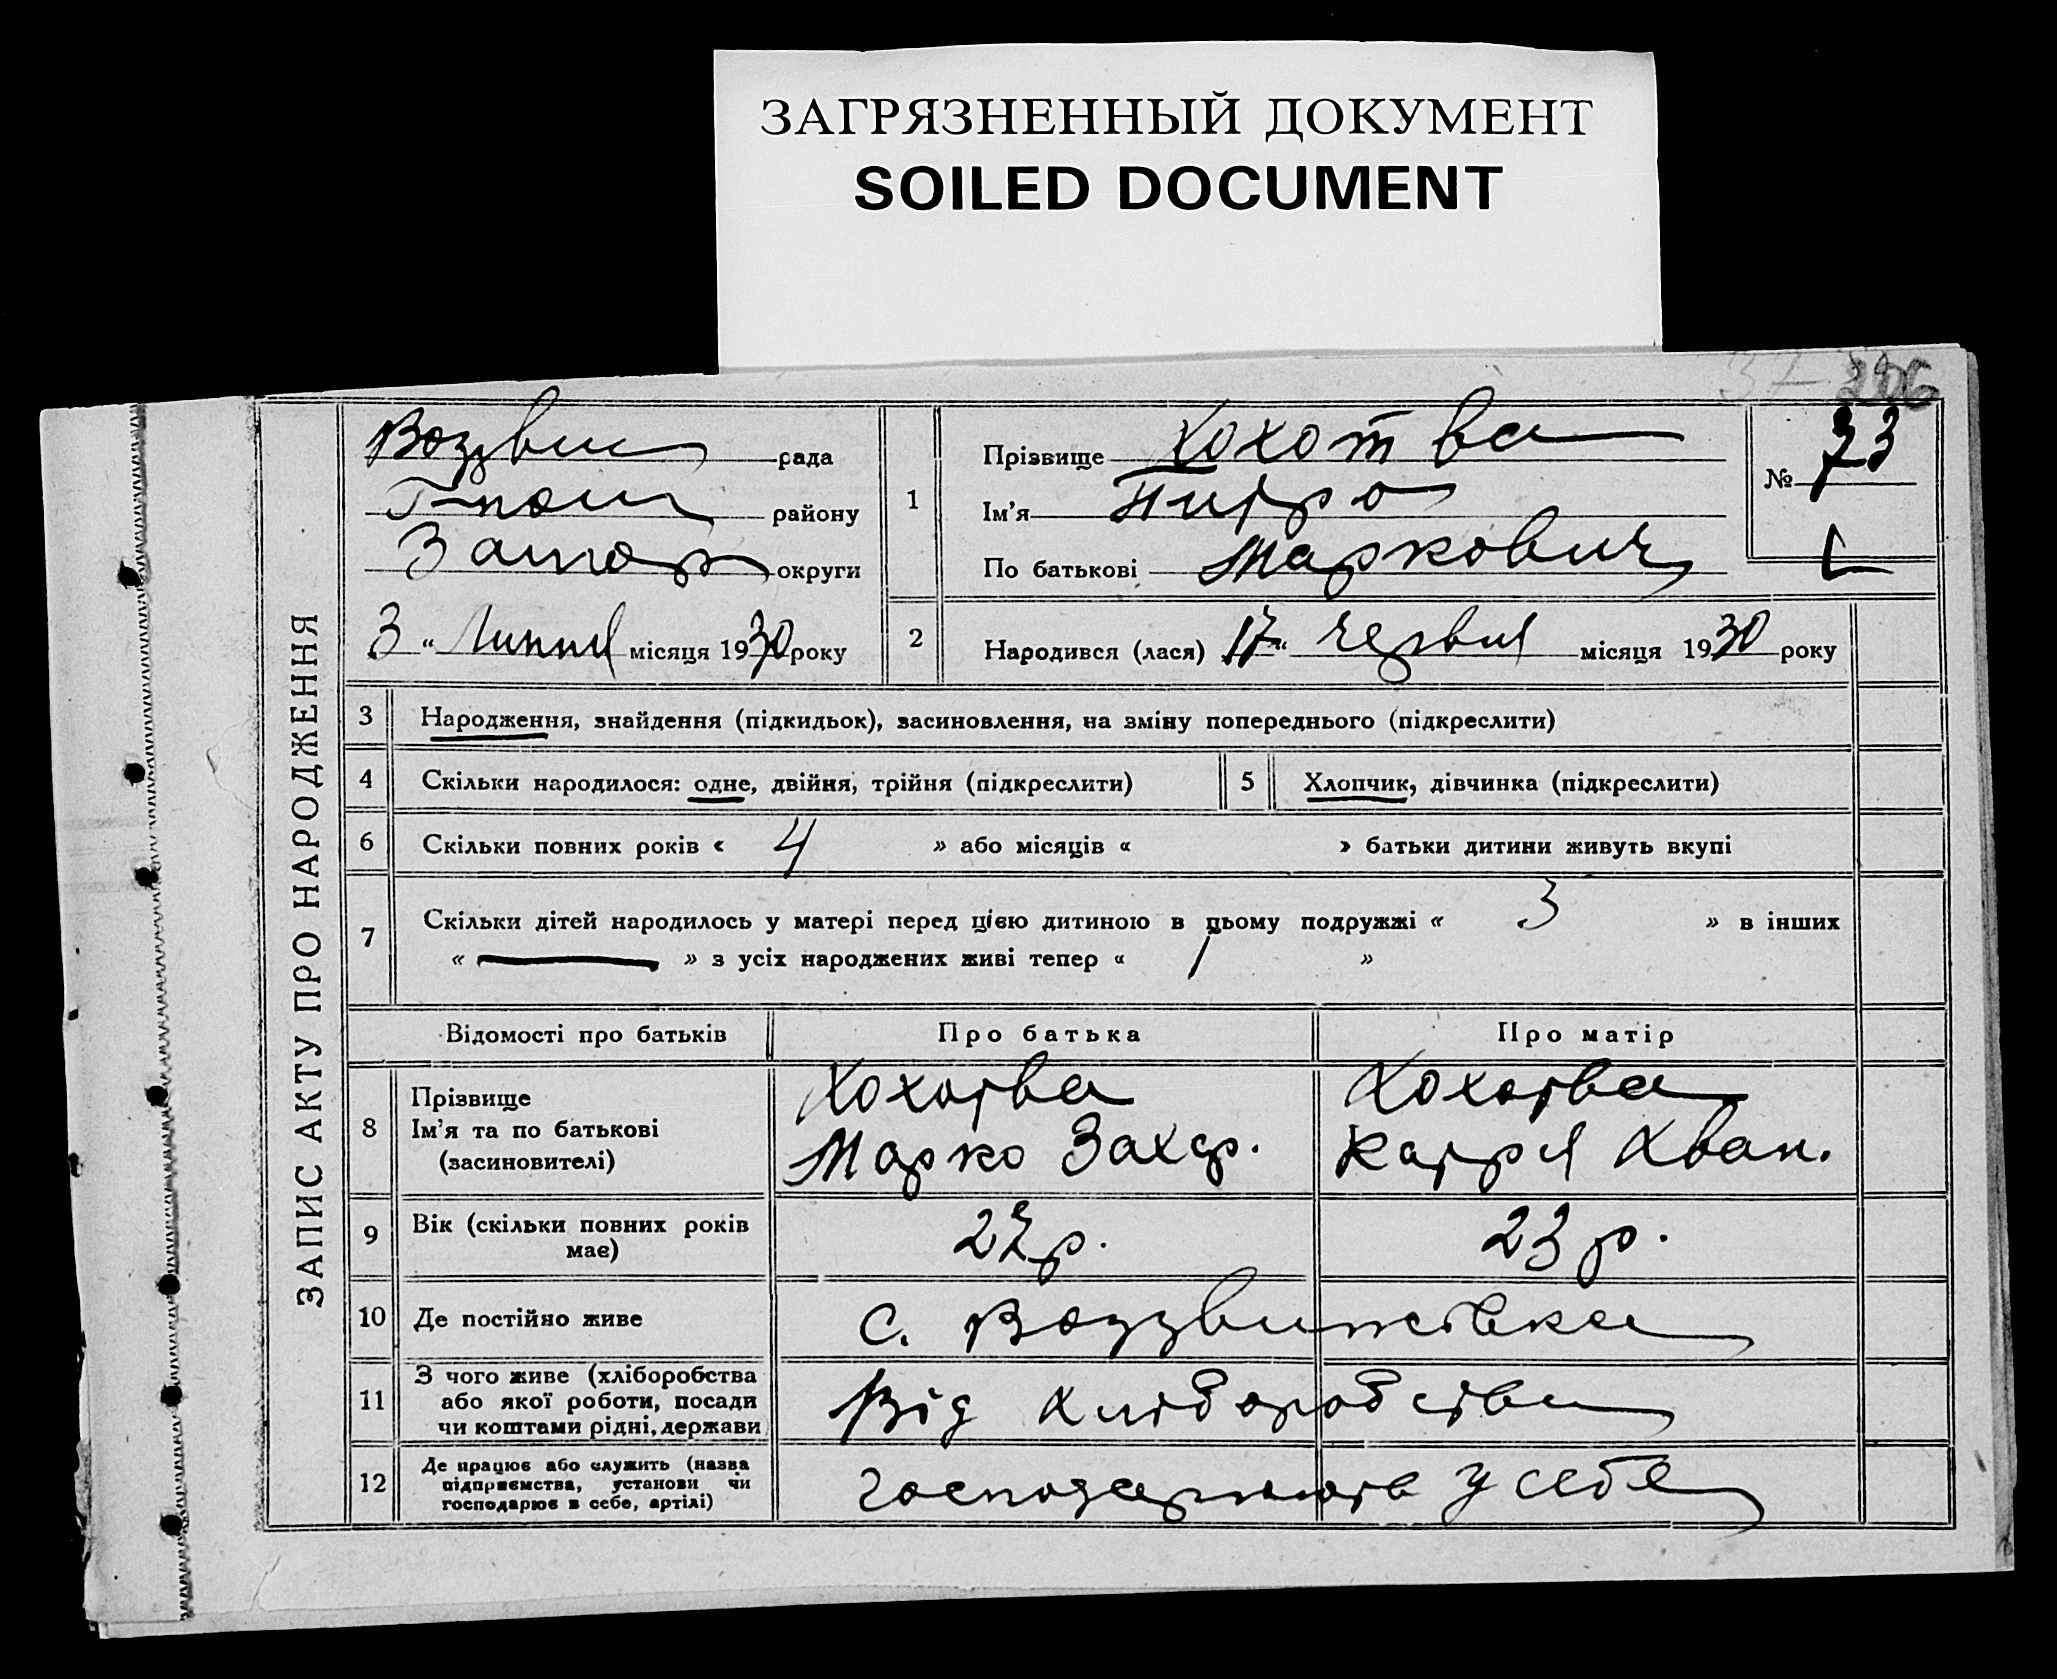 ЗАГРЯЗНЕННЫЙ ДОКУМЕНТ
SOILED DOCUMENT
ЗАПИС АКТУ ПРО НАРОДЖЕННЯ
Воздви рада
району
Запор округи
3 " Липня місяця 1930 року
1
Прізвище Хохотва
Ім'я Питро
По батькові Маркович
№ 73
2 Народився (лася) 17 " червня місяця 1930 року
3 Народження, знайдення (підкидьок), засиновлення, на зміну попереднього (підкреслити)
4 Скільки народилося: одне, двійня, трійня (підкреслити) 5 Хлопчик, дівчинка (підкреслити)
6 Скільки повних років « 4 » або місяців « » батьки дитини живуть вкупі
7 Скільки дітей народилось у матері перед цією дитиною в цьому подружжі « 3 » в інших
« — » з усіх народжених живі тепер « 1 »
Відомості про батьків Про батька Про матір
8 Прізвище Хохотва Хохотва
Ім'я та по батькові Марко Захар. Катря Іван.
(засиновителі)
9 Вік (скільки повних років має) 22 р. 23 р.
10 Де постійно живе с. Воздвижівка
11 З чого живе (хліборобства
або якої роботи, посади Від хліборобства
чи коштами рідні, держави
12 Де працює або служить (назва
підприємства, установи чи господарюють у себе
господарює в себе, артілі)